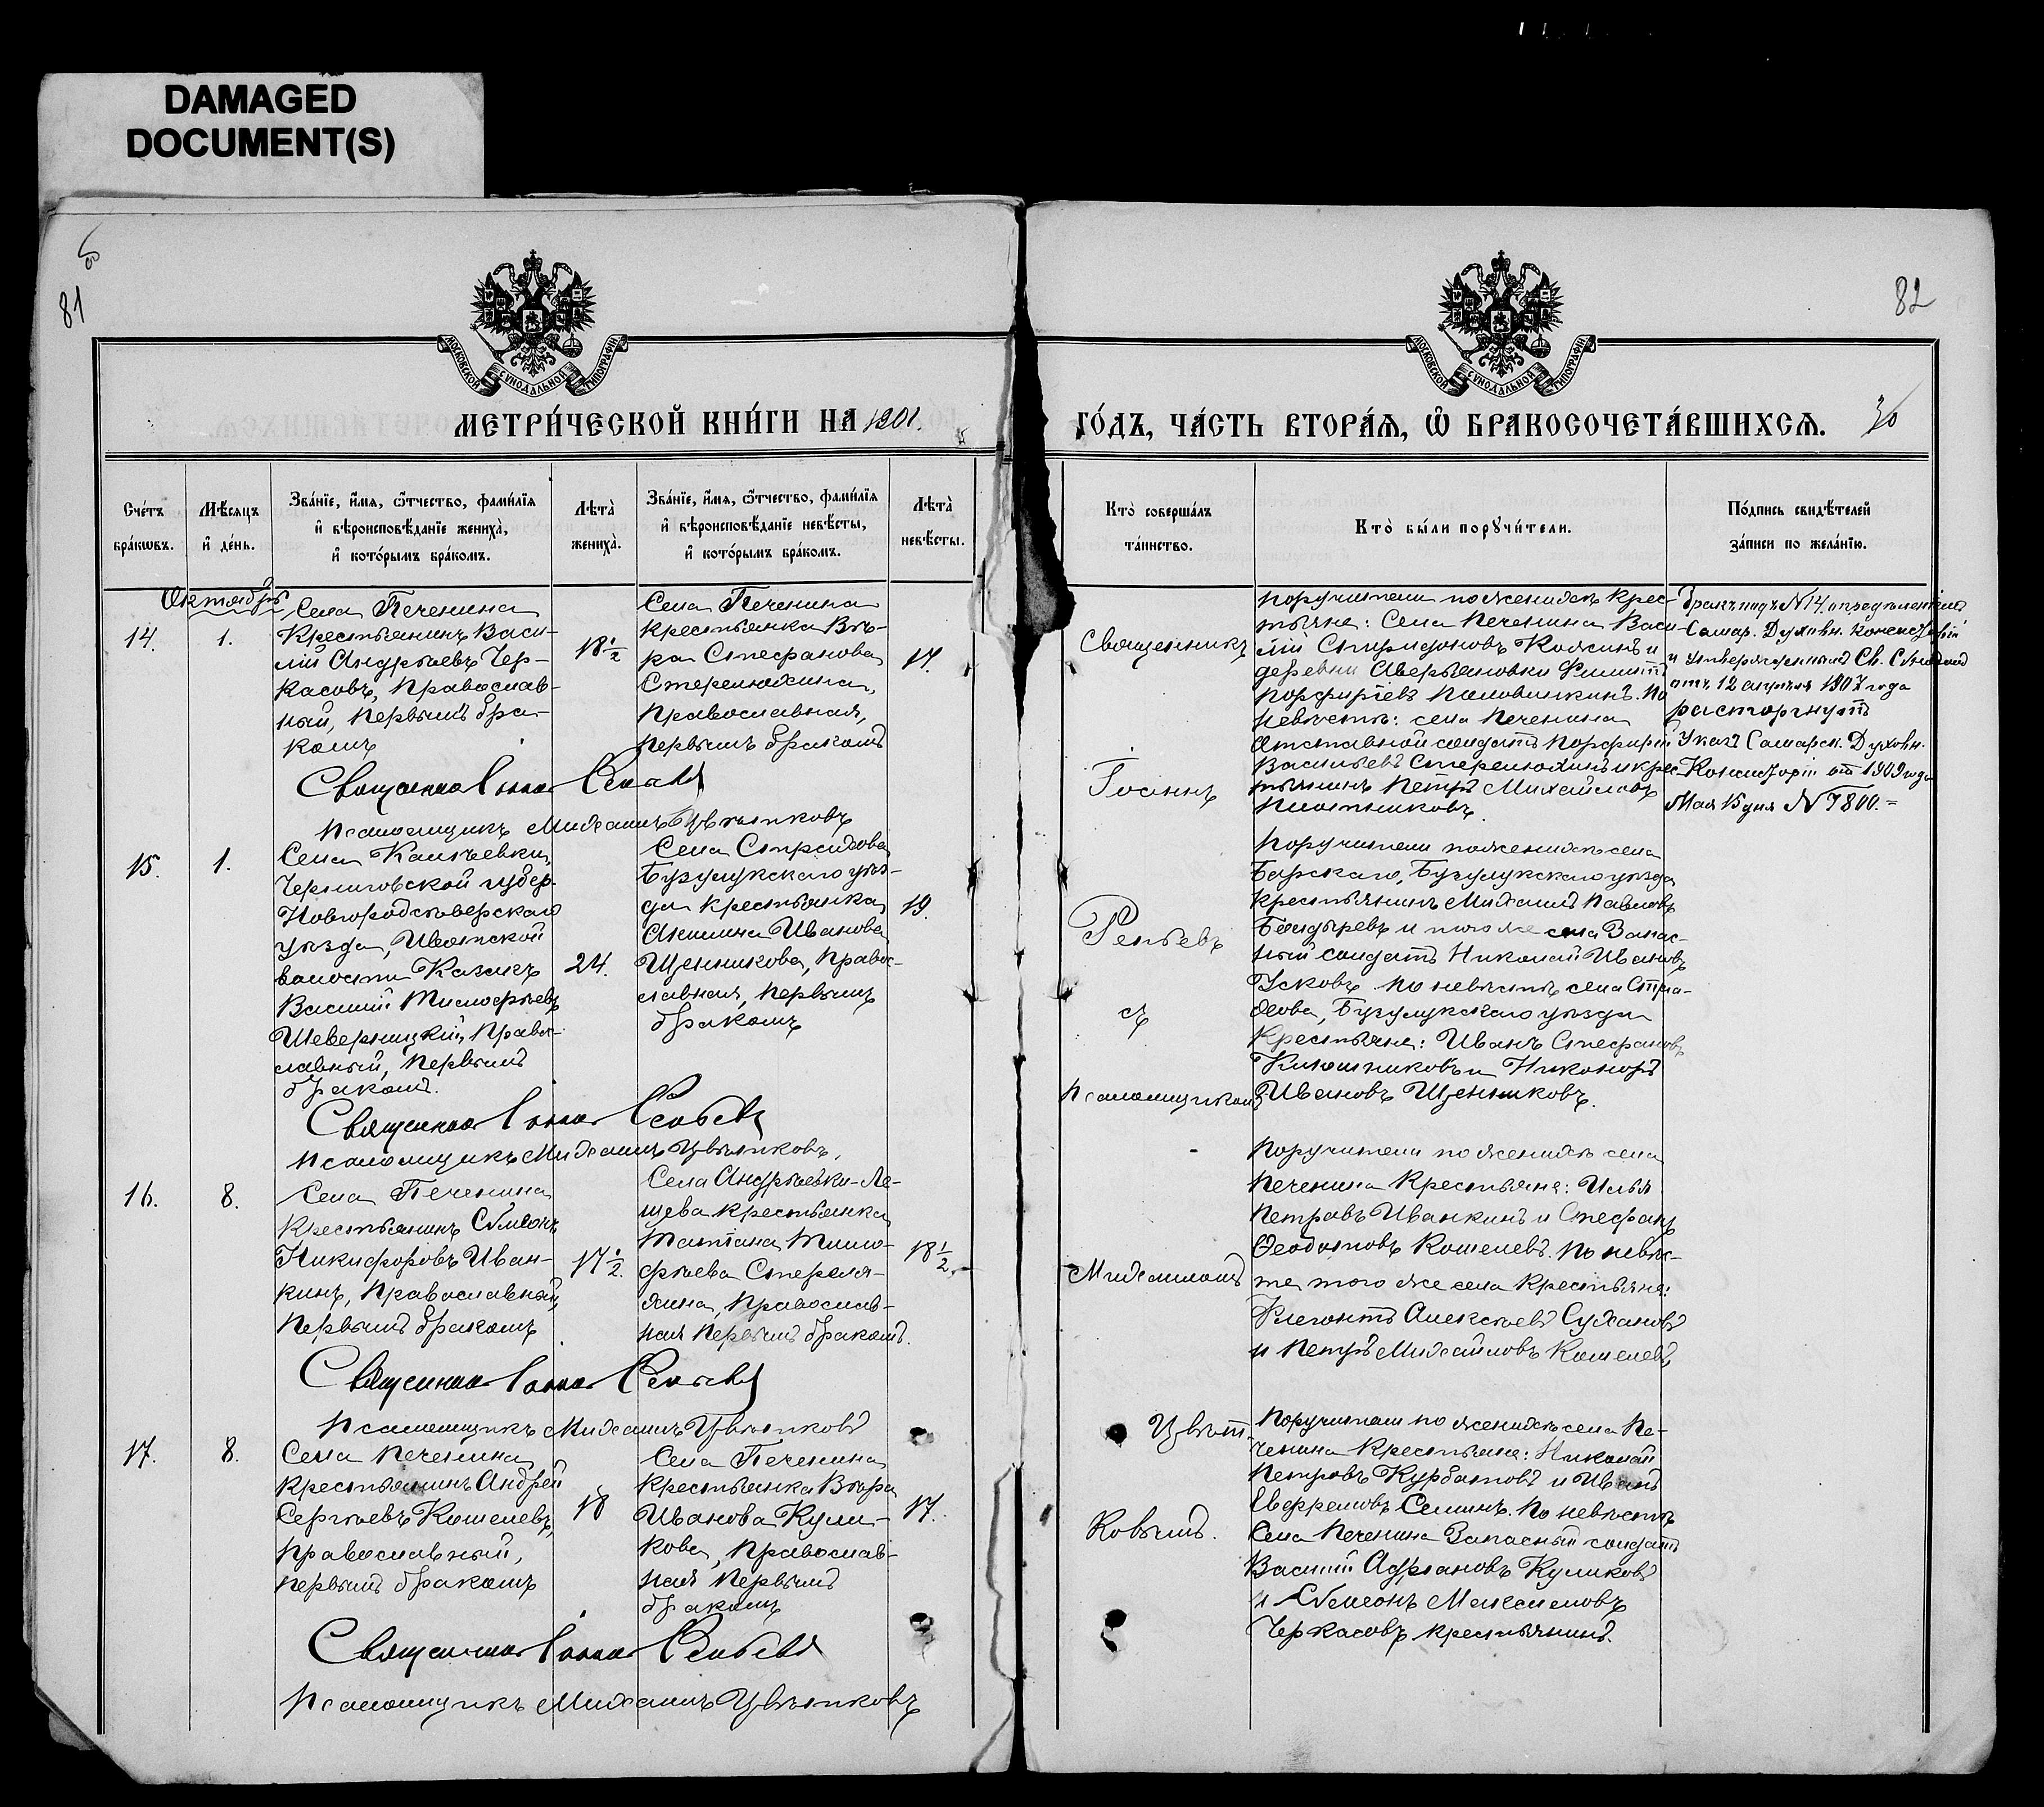 DAMAGED
DOCUMENT(S)
81
82
МОСКОВСКОЙ СѴНОДАЛЬНОЙ ТИПОГРАФІИ
МОСКОВСКОЙ СѴНОДАЛЬНОЙ ТИПОГРАФІИ
МЕТРИ́ЧЕСКОЙ КНИ́ГИ НА 1901.
ГО́ДЪ, ЧА́СТЬ ВТОРА́Ѧ, Ѽ БРАКОСОЧЕТА́ВШИХСѦ.
30
Сче́тъ
бра́кѡвъ.
Мѣ́сяцъ
и҆ де́нь.
Зва́нїе, и҆́мѧ, ѻ҆́тчество, фами́лїѧ
и҆ вѣроисповѣ́данїе жениха̀,
и҆ кото́рымъ бра́комъ.
Лѣта̀
жениха̀.
Зва́нїе, и҆́мѧ, ѻ҆́тчество, фами́лїѧ
и҆ вѣроисповѣ́данїе невѣ́сты,
и҆ кото́рымъ бра́комъ.
Лѣта̀
невѣ́сты.
Кто̀ соверша́лъ
та́инство.
Кто̀ бы́ли порꙋчи́тели.
По́дпись свидѣ́телей
за́писи по жела́нїю.
Октябрь
14.
1.
Села Печенина
крестьянинъ Васи-
лій Андреевъ Чер-
касовъ, православ-
ный, первымъ бра-
комъ
18½
Села Печенина
крестьянка Вѣ-
ра Стефанова
Стерелюхина,
православная,
первымъ бракомъ
17.
Священникъ
Іоаннъ
Поручители по женихѣ крес-
тьяне: Села Печенина Васи-
лій Спиридоновъ Кожинъ и
деревни Аверьяновки Филиппъ
Порфирьевъ Половинкинъ. По
невѣстѣ: села Печенина
Отставной солдатъ Порфирій
Васильевъ Стерелюхинъ и крес-
тьянинъ Петръ Михайловъ
Плотниковъ.
Бракъ подъ №14, опредѣленіемъ
Самар. Духовн. Консисторіи
и утвержденнымъ Св. Сѵнодомъ
отъ 12 апрѣля 1907 года
расторгнутъ
Указъ Самарск. Духовн.
Консисторіи отъ 1909 года
Мая 15 дня № 7800.=
Священникъ Іоаннъ Репьевъ
Псаломщикъ Михаилъ Цвѣтковъ
15.
1.
Черниговской губер.
Новгородсѣверскаго
уѣзда, Ивотской
волости Казакъ
Василій Тимофѣевъ
Шеверницкій, Право-
славный, первымъ
бракомъ.
24.
Бузулукскаго уѣз-
да крестьянка
Акилина Иванова
Щенникова, Право-
славная, первымъ
бракомъ
19.
Репьевъ
съ
Псаломщикомъ
Поручители по женихѣ села
Борскаго, Бузулукскаго уѣзда
крестьянинъ Михаилъ Павловъ
Болдыревъ и того же села Запас-
ный солдатъ Николай Ивановъ
Усковъ. По невѣстѣ села Стра-
хова, Бузулукскаго уѣзда
Крестьяне: Иванъ Стефановъ
Клюшниковъ и Никоноръ
Ивановъ Щенниковъ.
Священникъ Іоаннъ Репьевъ
Псаломщикъ Михаилъ Цвѣтковъ.
16.
8.
Села Печенина
крестьянинъ Сѵмеонъ
Никифоровъ Иван-
кинъ, Православный,
первымъ бракомъ
17½.
Села Андреевки-Ле-
щева крестьянка
Татіана Тимо-
фѣева Стереля-
хина, Православ-
ная первымъ бракомъ.
18½.
Михаиломъ
Поручители по женихѣ села
Печенина Крестьяне: Илья
Петровъ Иванкинъ и Стефанъ
Ѳеодотовъ Кошелевъ. По невѣс-
тѣ того же села Крестьяне:
Флегонтъ Алексѣевъ Сухановъ
и Петръ Михайловъ Кошелевъ
Священникъ Іоаннъ Репьевъ
Псаломщикъ Михаилъ Цвѣтковъ
17.
8.
Села Печенина
крестьянинъ Андрей
Сергѣевъ Кошелевъ,
православный,
первымъ бракомъ
18
Села Печенина
крестьянка Вѣра
Иванова Кули-
кова, Православ-
ная первымъ
бракомъ
17.
Цвѣт-
ковымъ.
Поручители по женихѣ села Пе-
ченина Крестьяне: Николай
Петровъ Курбатовъ и Иванъ
Евфремовъ Семинъ. По невѣстѣ
Села Печенина Запасный солдатъ
Василій Адріановъ Куликовъ
и Сѵмеонъ Максимовъ
Черкасовъ крестьянинъ.
Священникъ Іоаннъ Репьевъ
Псаломщикъ Михаилъ Цвѣтковъ